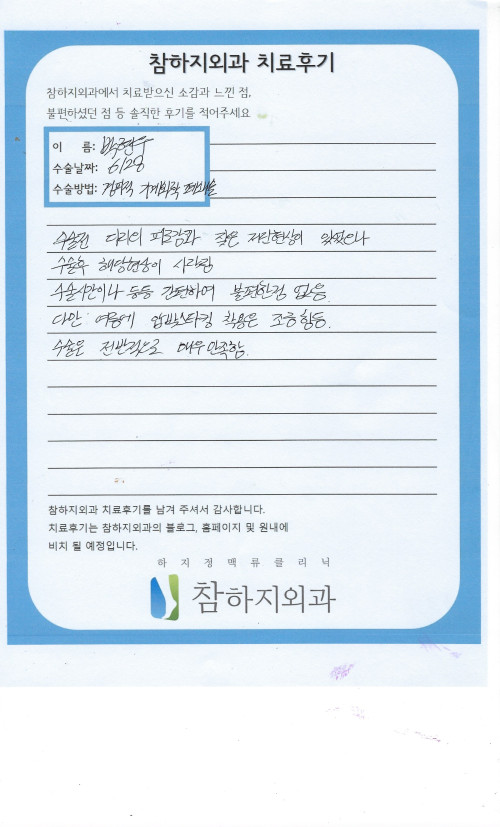 참하지외과 치료후기
참하지외과에서 치료받으신 소감과 느낀 점,
불편하셨던 점 등 솔직한 후기를 적어주세요
이 름: 박현우
수술날짜: 6/28
수술방법: 경피적 기계화학 폐쇄술
수술전 다리의 피로감과 잦은 저린현상이 있었으나
수술후 해당현상이 사라짐
수술시간이나 등등 간단하여 불편한점 없음.
다만 여름에 압박스타킹 착용은 조금 힘듬.
수술은 전반적으로 매우 만족함.
참하지외과 치료후기를 남겨 주셔서 감사합니다.
치료후기는 참하지외과의 블로그, 홈페이지 및 원내에
비치 될 예정입니다.
하지정맥류클리닉
참하지외과